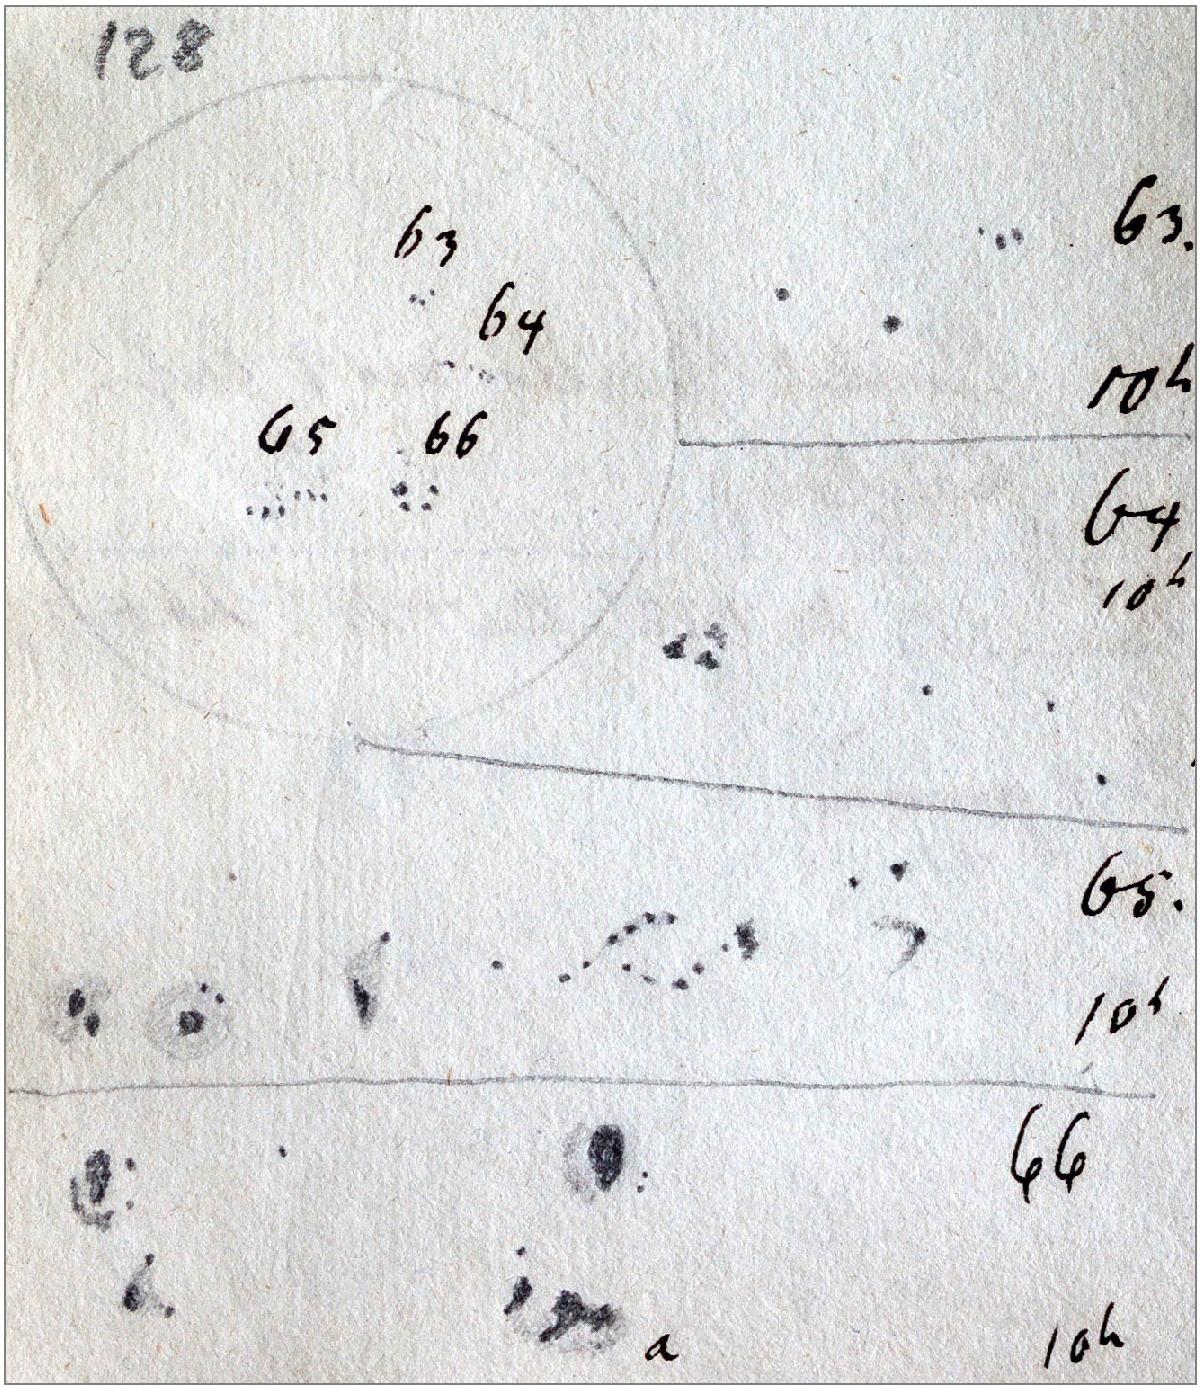 128
63
64
65 66
63.
10h
64
10h
65.
10h
66
a
10h